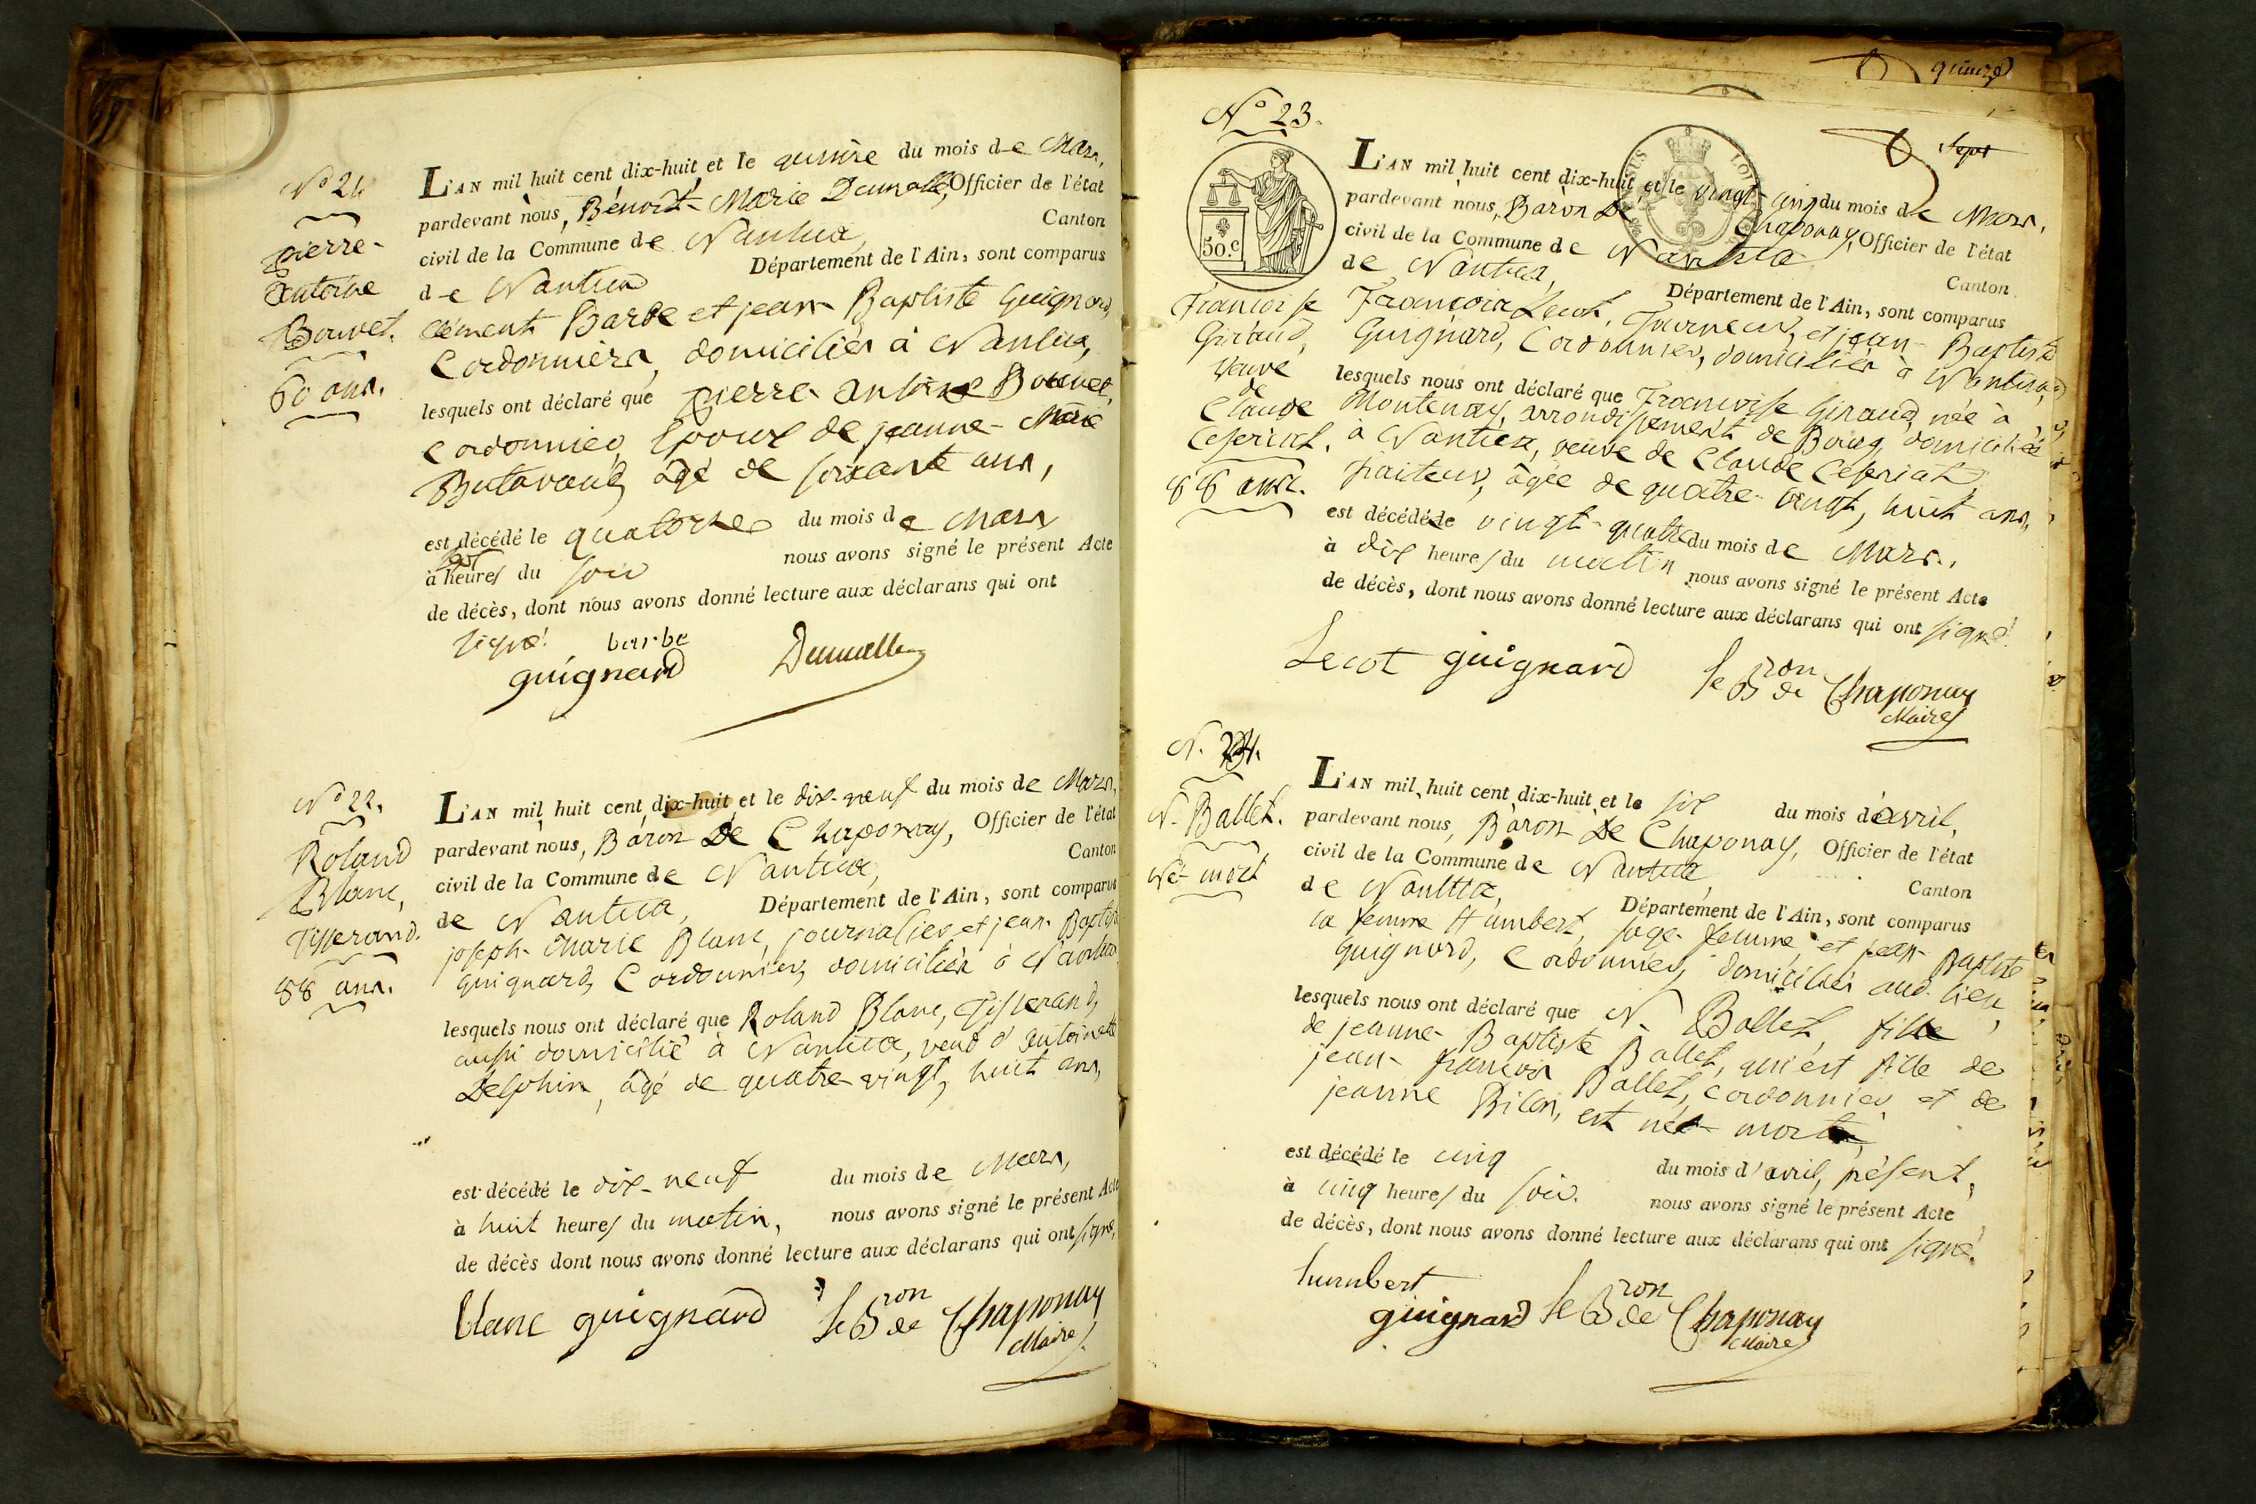 No 21
Pierre-
Antoine
Bouvet.
60 ans.
L'AN mil huit cent dix-huit et le quinze du mois de Mars,
pardevant nous, Benoit-Marie Officier de l'état
civil de la Commune de Nantua, Canton
de Nantua Département de l'Ain, sont comparus
Clément Barbe et jean Baptiste Guignard,
Cordonniers, domiciliés à Nantua,
lesquels ont déclaré que pierre antoine Bouvet,
Cordonnier, Epoux de jeanne-Marie
âgé de soixante ans,
est décédé le quatorze du mois de Mars
à heures du soir nous avons signé le présent Acte
de décès, dont nous avons donné lecture aux déclarans qui ont
signé. barbe
guignard
No 22.
Roland
Blanc,
Tisserand.
88 ans.
L'AN mil huit cent dix-huit et le dix-neuf du mois de Mars,
pardevant nous, Baron De Chaponay, Officier de l'état
civil de la Commune de Nantua, Canton
de Nantua, Département de l'Ain, sont comparus
joseph-Marie Blanc, journalier et jean-Baptiste
guignard, Cordonnier, domiciliés à Nantua
lesquels nous ont déclaré que Roland Blanc, Tisserand,
aussi domicilié à Nantua, veuf d'antoinette
Delphin, âgé de quatre vingt, huit ans,
est décédé le dix-neuf du mois de Mars,
à huit heures du matin, nous avons signé le présent Acte
de décès dont nous avons donné lecture aux déclarans qui ont signé,
blanc guignard le Bron de Chaponay
Maire
quinze
No 23.
Sept
50.c
L'AN mil huit cent dix-huit et le vingt-cinq du mois de Mars,
pardevant nous, Baron De Chaponay, Officier de l'état
civil de la Commune de Nantua Canton
de Nantua, Département de l'Ain, sont comparus
Francoise
Giraud,
veuve
de
Claude
Ceseriat.
88 ans.
Francois Lecot, Tourneur, et jean-Baptiste
Guignard, Cordonnier, domiciliés à Nantua,
lesquels nous ont déclaré que Francoise Giraud, née à
Montenay, arrondissement de Bourg, domiciliée
à Nantua, veuve de Claude Ceseriat,
traiteur, âgée de quatre-vingt, huit ans,
est décédé le vingt-quatre du mois de Mars,
à dix heures du matin nous avons signé le présent Acte
de décès, dont nous avons donné lecture aux déclarans qui ont signé.
Lecot guignard le Bron de Chaponay
Maire
N. 24.
N. Ballet.
Né-mort
L'AN mil huit cent dix-huit et le six du mois d'avril,
pardevant nous, Baron De Chaponay, Officier de l'état
civil de la Commune de Nantua, Canton
de Nantua, Département de l'Ain, sont comparus
la femme Humbert, sage-femme, et jean-Baptiste
guignard, Cordonnier, domiciliés aud. lieu,
lesquels nous ont déclaré que N. Ballet, fille
de jeanne-Baptiste Ballet, qui est fille de
jean-francois Ballet, cordonnier et de
jeanne est née-morte,
est décédé le cinq du mois d'avril, présent,
à cinq heures du soir. nous avons signé le présent Acte
de décès, dont nous avons donné lecture aux déclarans qui ont signé.
humbert
guignard le Bron de Chaponay
Maire